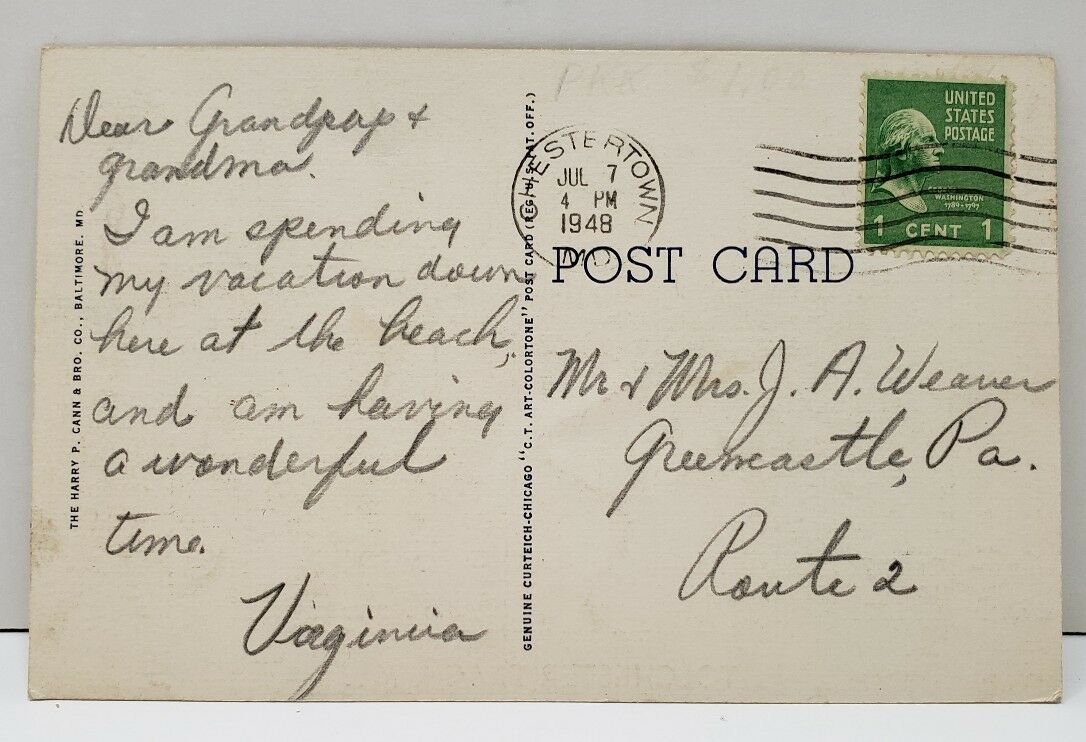 Dear Grandpap &
grandma.
I am spending
my vacation down
here at the beach,
and am having
a wonderful
time.
Virginia
THE HARRY P. CANN & BRO. CO., BALTIMORE, MD.
GENUINE CURTEICH-CHICAGO "C.T. ART-COLORTONE" POST CARD (REG. U.S. PAT. OFF.)
CHESTERTOWN
JUL 7
4 PM
1948
MD.
UNITED
STATES
POSTAGE
WASHINGTON
1789-1797
1 CENT 1
POST CARD
Mr & Mrs. J. A. Weaver
Greencastle, Pa.
Route 2